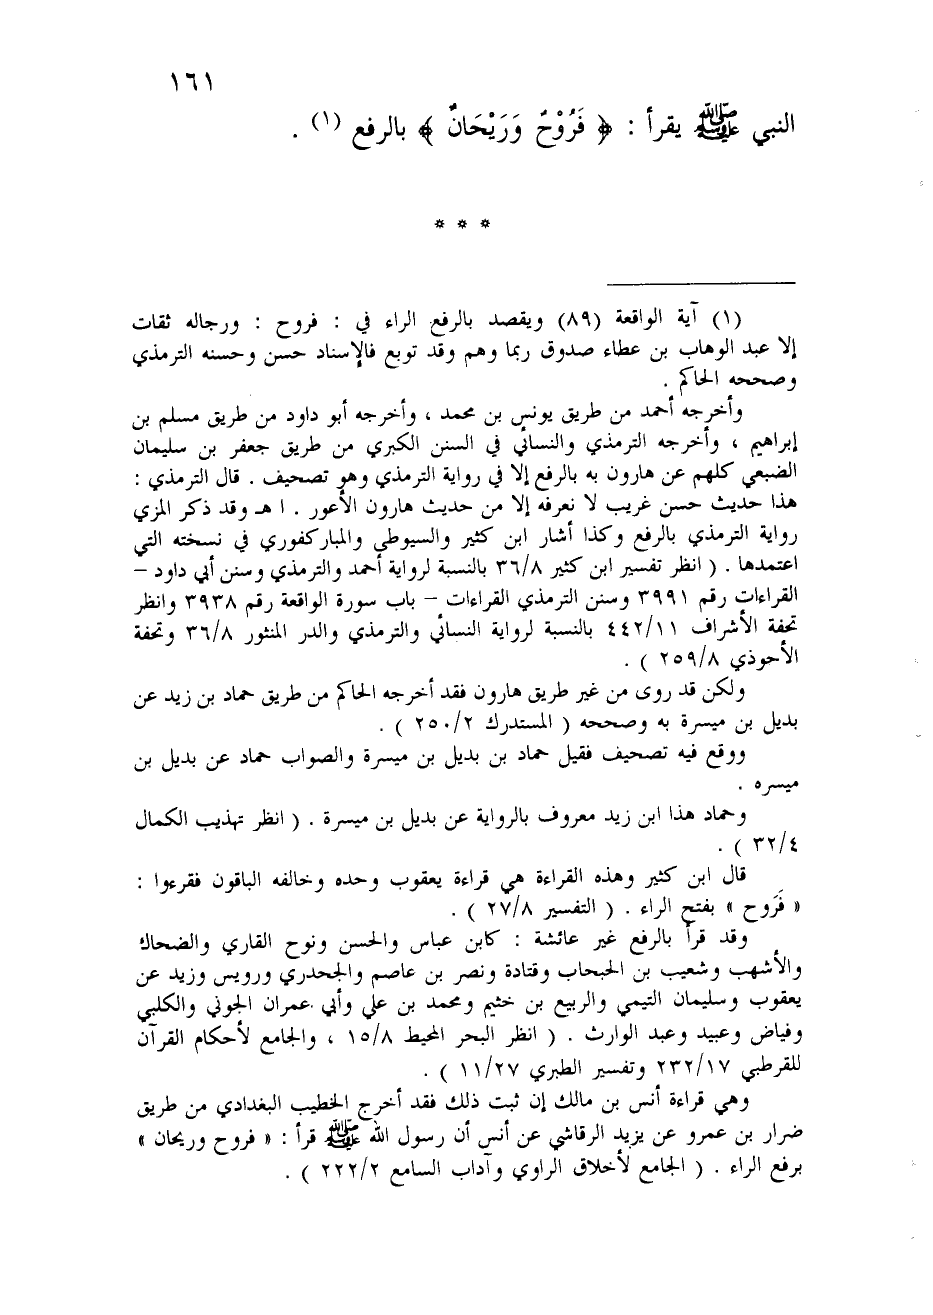 ١٦١
النبي ﷺ يقرأ : ﴿ فَرُوْحٌ وَرَيْحَانٌ ﴾ بالرفع (١) .
* * *
(١) آية الواقعة (٨٩) ويقصد بالرفع الراء في : فروح : ورجاله ثقات
إلا عبد الوهاب بن عطاء صدوق ربما وهم وقد توبع فالإسناد حسن وحسنه الترمذي
وصححه الحاكم .
وأخرجه أحمد من طريق يونس بن محمد ، وأخرجه أبو داود من طريق مسلم بن
إبراهيم ، وأخرجه الترمذي والنسائي في السنن الكبري من طريق جعفر بن سليمان
الضبعي كلهم عن هارون به بالرفع إلا في رواية الترمذي وهو تصحيف . قال الترمذي :
هذا حديث حسن غريب لا نعرفه إلا من حديث هارون الأعور . اهـ وقد ذكر المزي
رواية الترمذي بالرفع وكذا أشار ابن كثير والسيوطي والمباركفوري في نسخته التي
اعتمدها . ( انظر تفسير ابن كثير ٣٦/٨ بالنسبة لرواية أحمد والترمذي وسنن أبي داود –
القراءات رقم ٣٩٩١ وسنن الترمذي القراءات – باب سورة الواقعة رقم ٣٩٣٨ وانظر
تحفة الأشراف ٤٤٢/١١ بالنسبة لرواية النسائي والترمذي والدر المنثور ٣٦/٨ وتحفة
الأحوذي ٢٥٩/٨ ) .
ولكن قد روى من غير طريق هارون فقد أخرجه الحاكم من طريق حماد بن زيد عن
بديل بن ميسرة به وصححه ( المستدرك ٢٥٠/٢ ) .
ووقع فيه تصحيف فقيل حماد بن بديل بن ميسرة والصواب حماد عن بديل بن
ميسره .
وحماد هذا ابن زيد معروف بالرواية عن بديل بن ميسرة . ( انظر تهذيب الكمال
٣٢/٤ ) .
قال ابن كثير وهذه القراءة هي قراءة يعقوب وحده وخالفه الباقون فقرءوا :
« فَرَوح » بفتح الراء . ( التفسير ٢٧/٨ ) .
وقد قرأ بالرفع غير عائشة : كابن عباس والحسن ونوح القاري والضحاك
والأشهب وشعيب بن الحبحاب وقتادة ونصر بن عاصم والجحدري ورويس وزيد عن
يعقوب وسليمان التيمي والربيع بن خثيم ومحمد بن علي وأبي عمران الجوني والكلبي
وفياض وعبيد وعبد الوارث . ( انظر البحر المحيط ١٥/٨ ، والجامع لأحكام القرآن
للقرطبي ٢٣٢/١٧ وتفسير الطبري ١١/٢٧ ) .
وهي قراءة أنس بن مالك إن ثبت ذلك فقد أخرج الخطيب البغدادي من طريق
ضرار بن عمرو عن يزيد الرقاشي عن أنس أن رسول الله ﷺ قرأ : « فروح وريحان »
برفع الراء . ( الجامع لأخلاق الراوي وآداب السامع ٢٢٢/٢ ) .